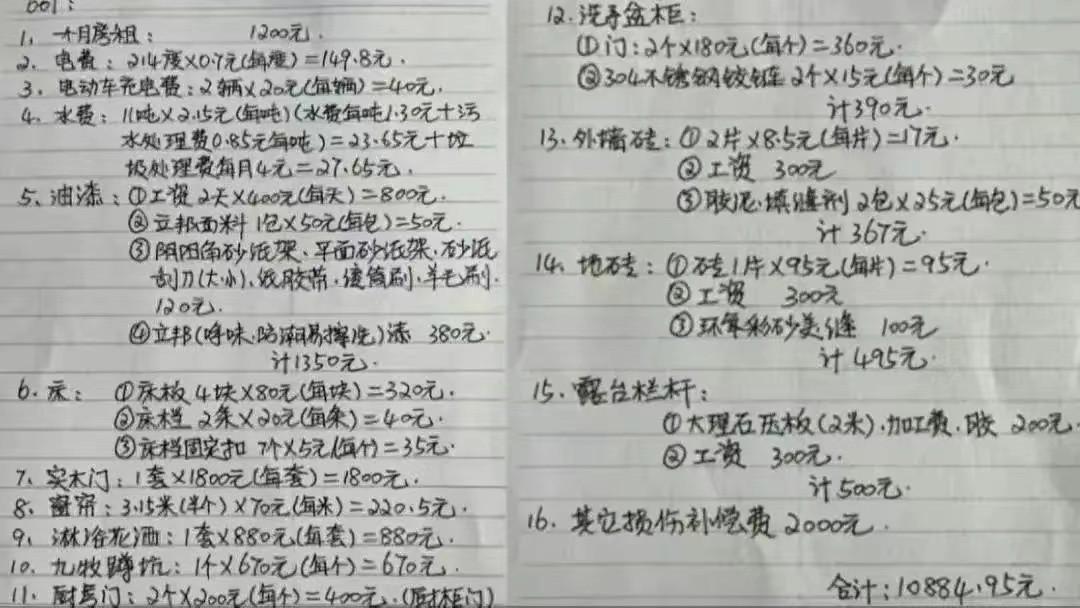 601:
1、一个月房租: 1200元.
2、电费: 214度×0.7元(每度)=149.8元.
3、电动车充电费: 2辆×20元(每辆)=40元.
4、水费: 11吨×2.15元(每吨)(水费每吨1.30元+污
水处理费0.85元每吨)=23.65元+垃
圾处理费每月4元=27.65元.
5、油漆: ①工资 2天×400元(每天)=800元.
②立邦面料 1包×50元(每包)=50元.
③阴阳角砂纸架、平面砂纸架、砂纸
刮刀(大小)、纸胶带、滚筒刷、羊毛刷.
120元.
④立邦(呼味、防潮易擦洗)漆 380元.
计1350元.
6、床: ①床板 4块×80元(每块)=320元.
②床档 2条×20元(每条)=40元.
③床档固定扣 7个×5元(每个)=35元.
7、实木门: 1套×1800元(每套)=1800元.
8、窗帘: 3.15米(半个)×70元(每米)=220.5元.
9、淋浴花洒: 1套×880元(每套)=880元.
10、九牧蹲坑: 1个×670元(每个)=670元.
11、厨房门: 2个×200元(每个)=400元.(厨柜门)
12.洗手盆柜:
①门: 2个×180元(每个)=360元.
②304不锈钢铰链 2个×15元(每个)=30元
计390元.
13、外墙砖: ①2片×8.5元(每片)=17元.
②工资 300元
③胶泥、填缝剂 2包×25元(每包)=50元
计367元.
14、地砖: ①砖1片×95元(每片)=95元.
②工资 300元
③环氧彩砂美缝 100元
计495元.
15、露台栏杆:
①大理石压板(2米).加工费.胶 200元.
②工资 300元.
计500元.
16、其它损伤补偿费 2000元.
合计: 10884.95元.